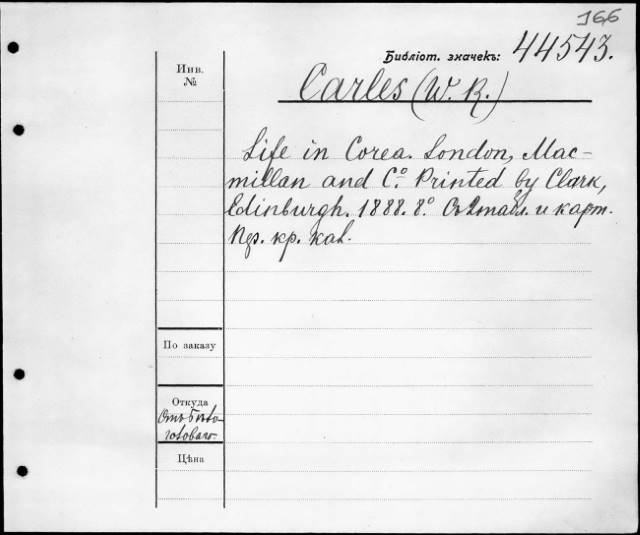 166
Библіот. значекъ: 44543.
Инв.
№
Carles (W. R.)
Life in Corea. London, Mac-
millan and Cº. Printed by Clark,
Edinburgh. 1888. 8º. Съ табл. и карт.
Пер. кр. кал.
По заказу
Откуда
Отъ
Цѣна